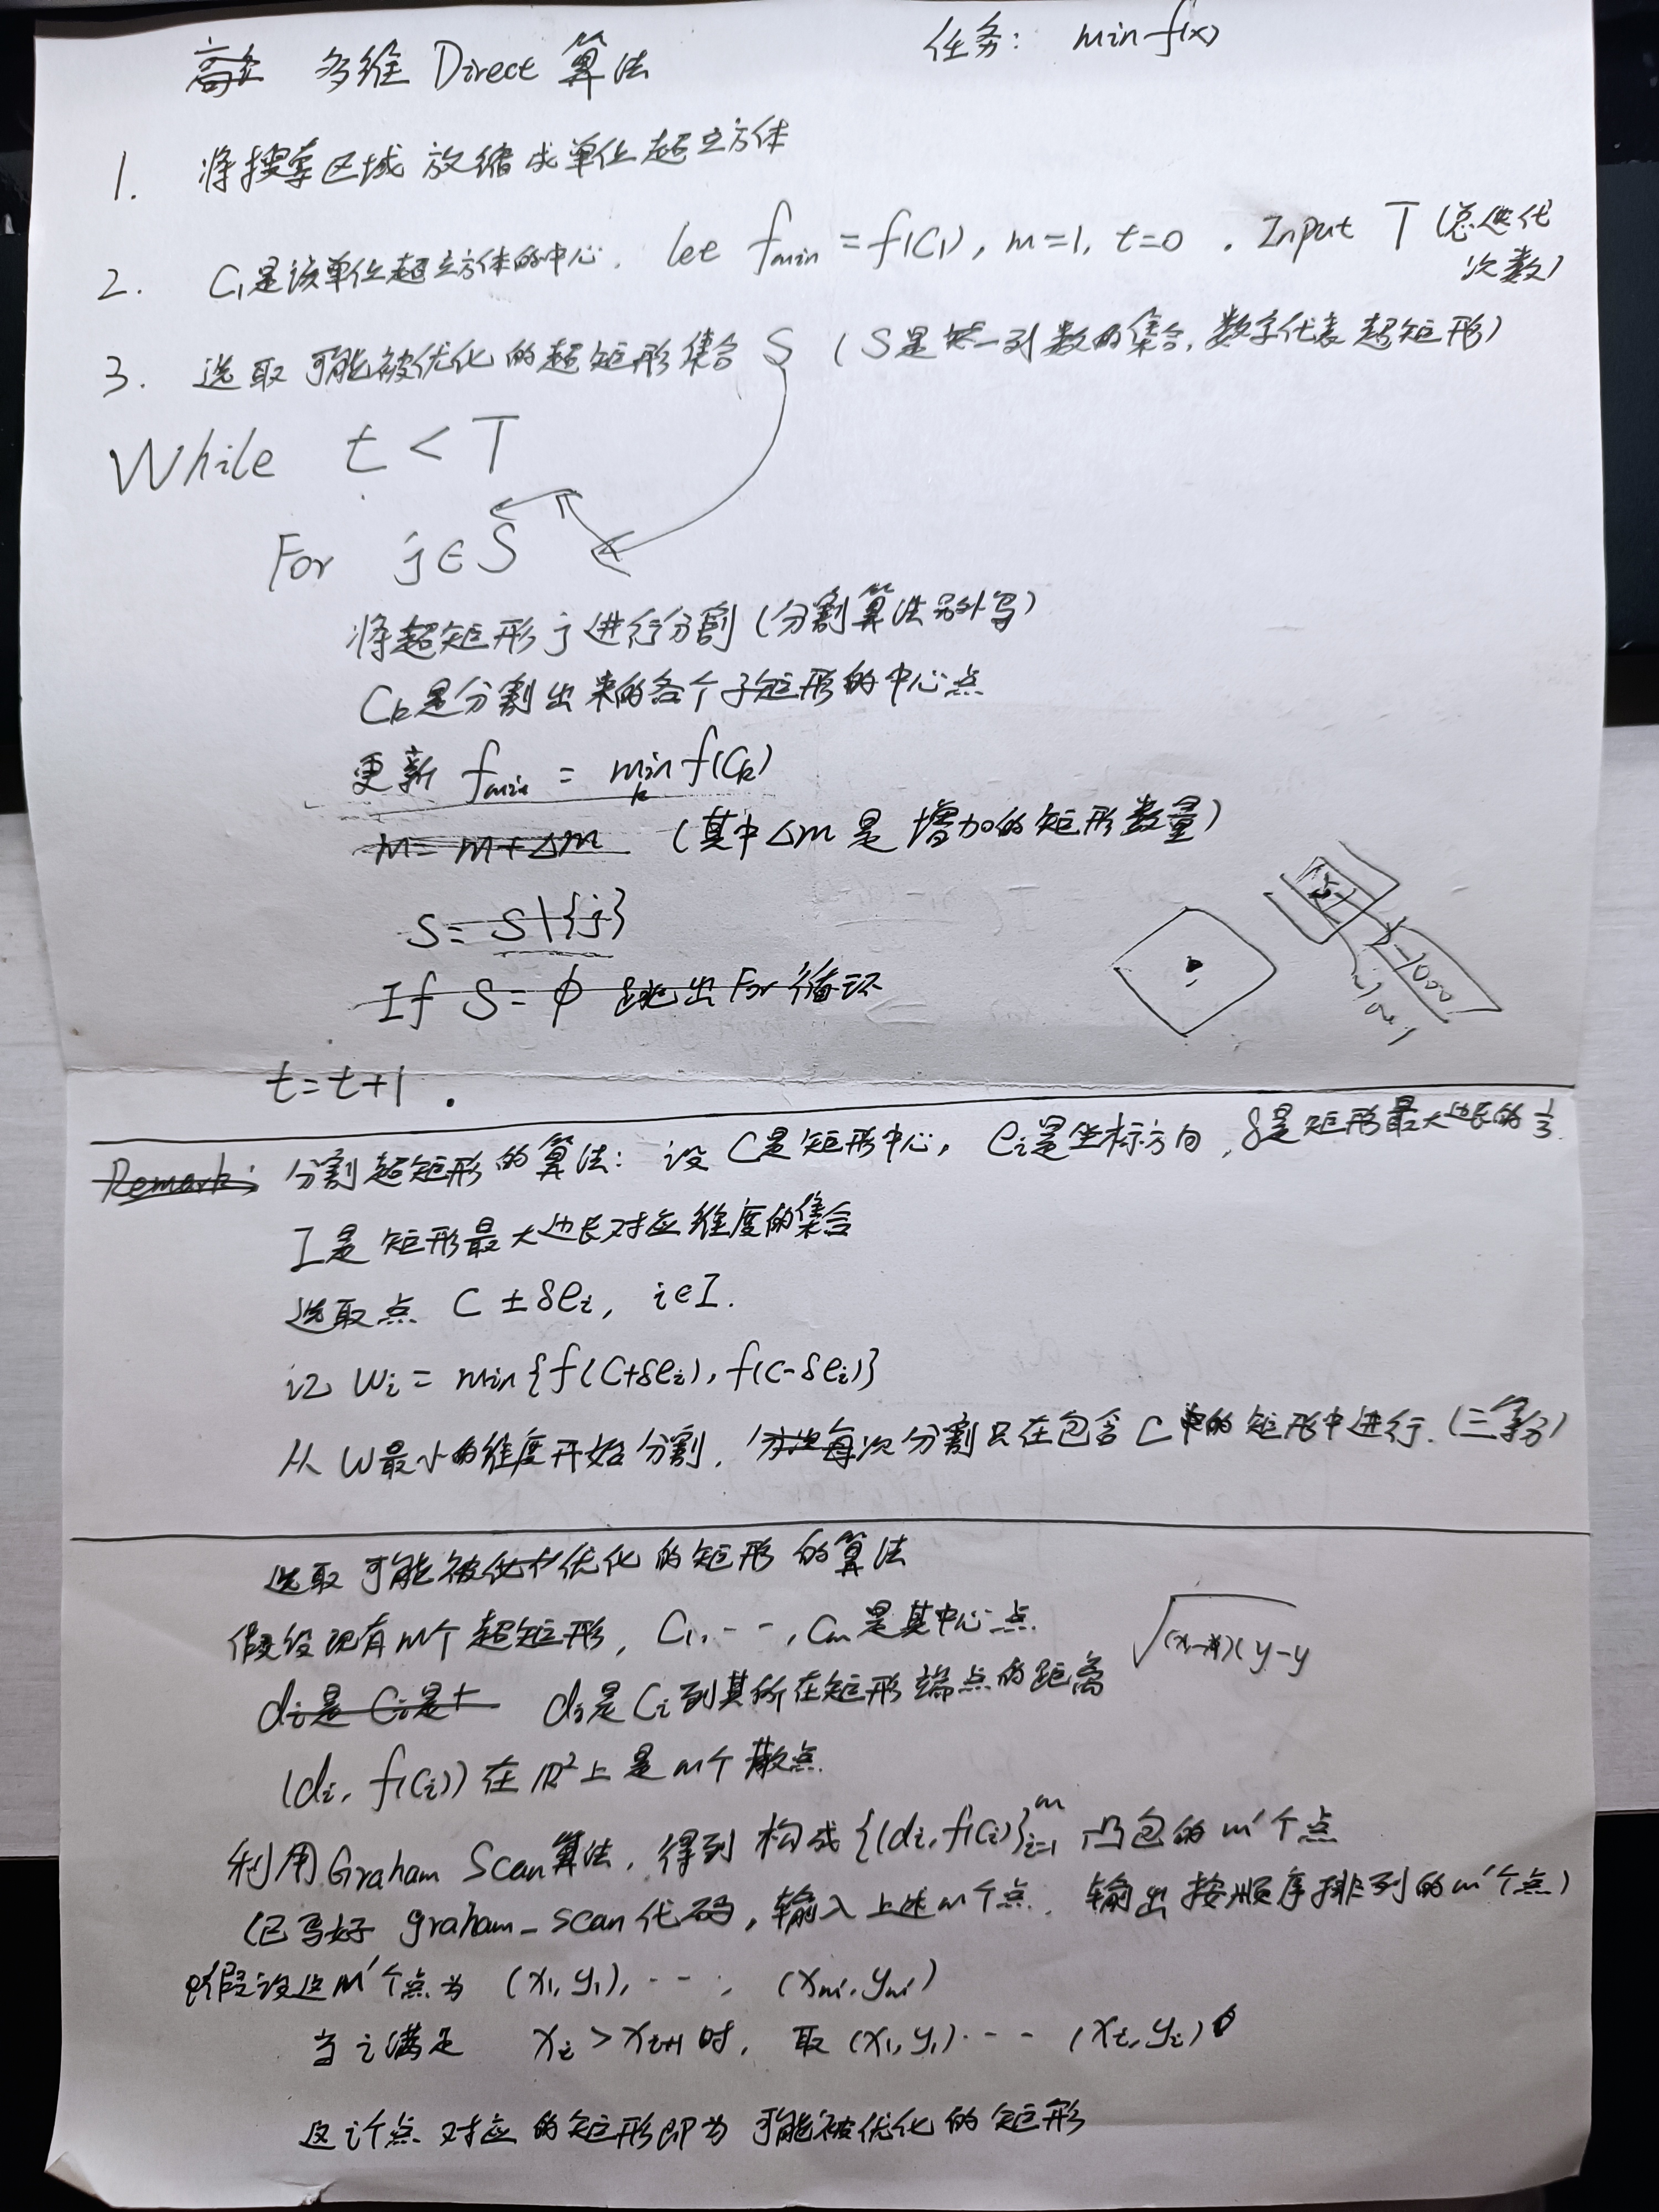 多维 Direct 算法
任务: min f(x)
1. 将搜索区域放缩成单位超立方体
2. C₁是该单位超立方体的中心. let f_min = f(C₁), m=1, t=0. Input T (总迭代次数)
3. 选取可能被优化的超矩形集合 S (S是一列数的集合, 数字代表超矩形)
While t < T
For j∈S
将超矩形 j 进行分割 (分割算法另外写)
C_k是分割出来的各个子矩形的中心点
更新 f_min = min_k f(C_k)
m = m + Δm (其中 Δm 是增加的矩形数量)
S = S \ {j}
If S = ϕ 跳出 For 循环
1000
t = t+1.
Remark: 分割超矩形的算法: 设 C是矩形中心, e_i是坐标方向, δ是矩形最大边长的 1/3.
I是矩形最大边长对应维度的集合
选取点 C ± δe_i, i∈I.
记 w_i = min{f(C+δe_i), f(C-δe_i)}
从 w最小的维度开始分割. 每次分割只在包含 C 的矩形中进行. (三等分)
选取可能被优化的矩形的算法
假设现有m个超矩形, C₁, ..., C_m是其中心点.
d_i是 C_i是 d_i是C_i到其所在矩形端点的距离
(d_i, f(C_i)) 在 ℝ² 上是 m个散点.
利用 Graham Scan算法, 得到构成 {(d_i, f(C_i)}_{i=1}^m 凸包的 m'个点
(已写好 graham_scan 代码, 输入上述m个点, 输出按顺序排列的m'个点)
假设这m'个点为 (x₁, y₁), ..., (x_m', y_m')
当 i 满足 x_i > x_{i+1} 时, 取 (x₁, y₁) ... (x_i, y_i)
这i个点对应的矩形即为可能被优化的矩形